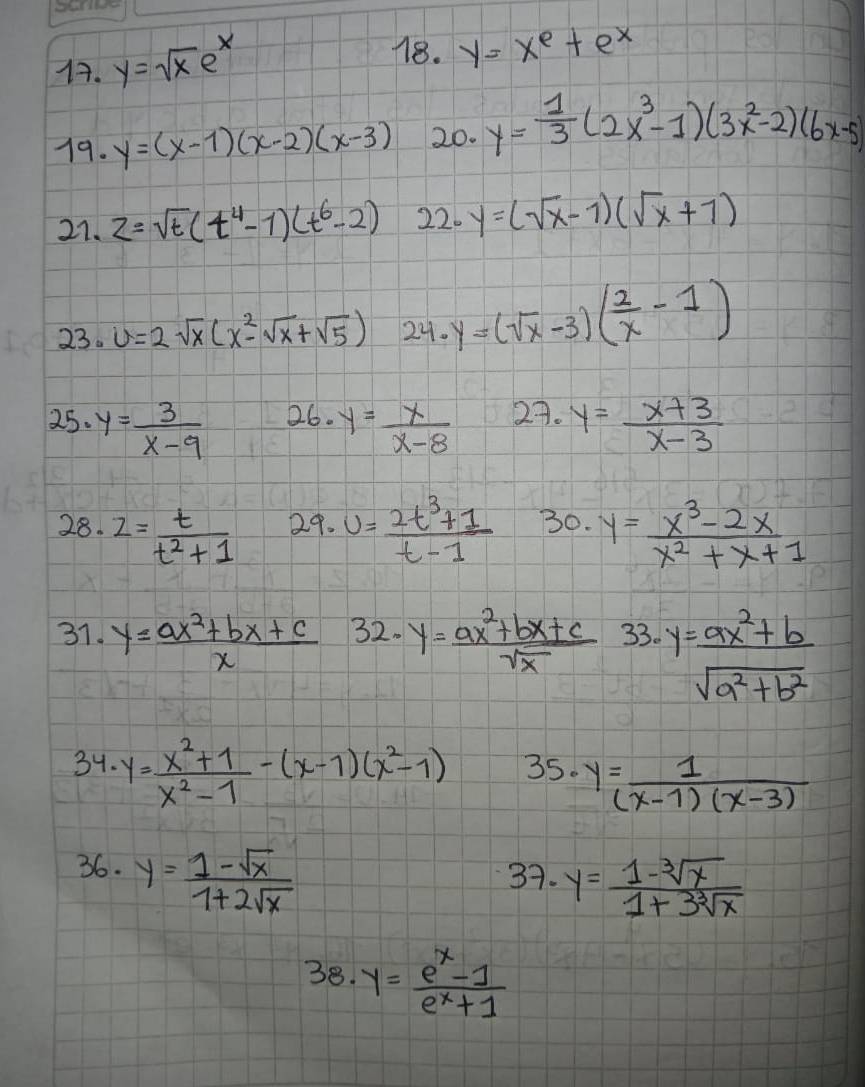 Scribe
17. y = √x e^x 18. y = x^e + e^x
19. y = (x-1)(x-2)(x-3) 20. y = 1/3 (2x^3-1)(3x^2-2)(6x-5)
21. z = √t (t^4-1)(t^6-2) 22. y = (√x-1)(√x+1)
23. u = 2√x (x^2-√x+√5) 24. y = (√x-3)(2/x - 1)
25. y = 3/(x-9) 26. y = x/(x-8) 27. y = (x+3)/(x-3)
28. z = t/(t^2+1) 29. u = (2t^3+1)/(t-1) 30. y = (x^3-2x)/(x^2+x+1)
31. y = (ax^2+bx+c)/x 32. y = (ax^2+bx+c)/√x 33. y = (ax^2+b)/√(a^2+b^2)
34. y = (x^2+1)/(x^2-1) - (x-1)(x^2-1) 35. y = 1/((x-1)(x-3))
36. y = (1-√x)/(1+2√x) 37. y = (1-∛x)/(1+3∛x)
38. y = (e^x-1)/(e^x+1)